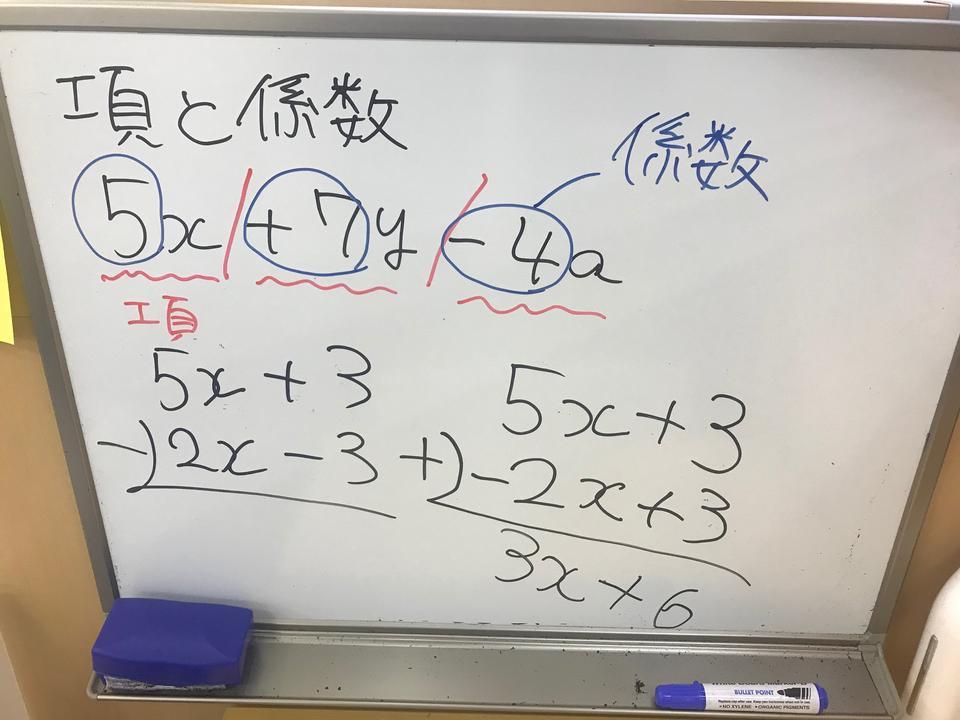 項と係数
係数
5x/+7y/-4a
項
5x+3
-)2x-3
5x+3
+)-2x+3
3x+6
BULLET POINT
•NO XYLENE •ORGANIC PIGMENTS